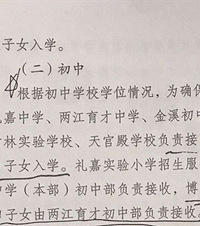 子女入学。
（二）初中
根据初中学校学位情况，为确保
嘉中学、两江育才中学、金溪初中
林实验学校、天宫殿学校负责接
子女入学。礼嘉实验小学招生服
学（本部）初中部负责接收，博
子女由两江育才初中部负责接收。